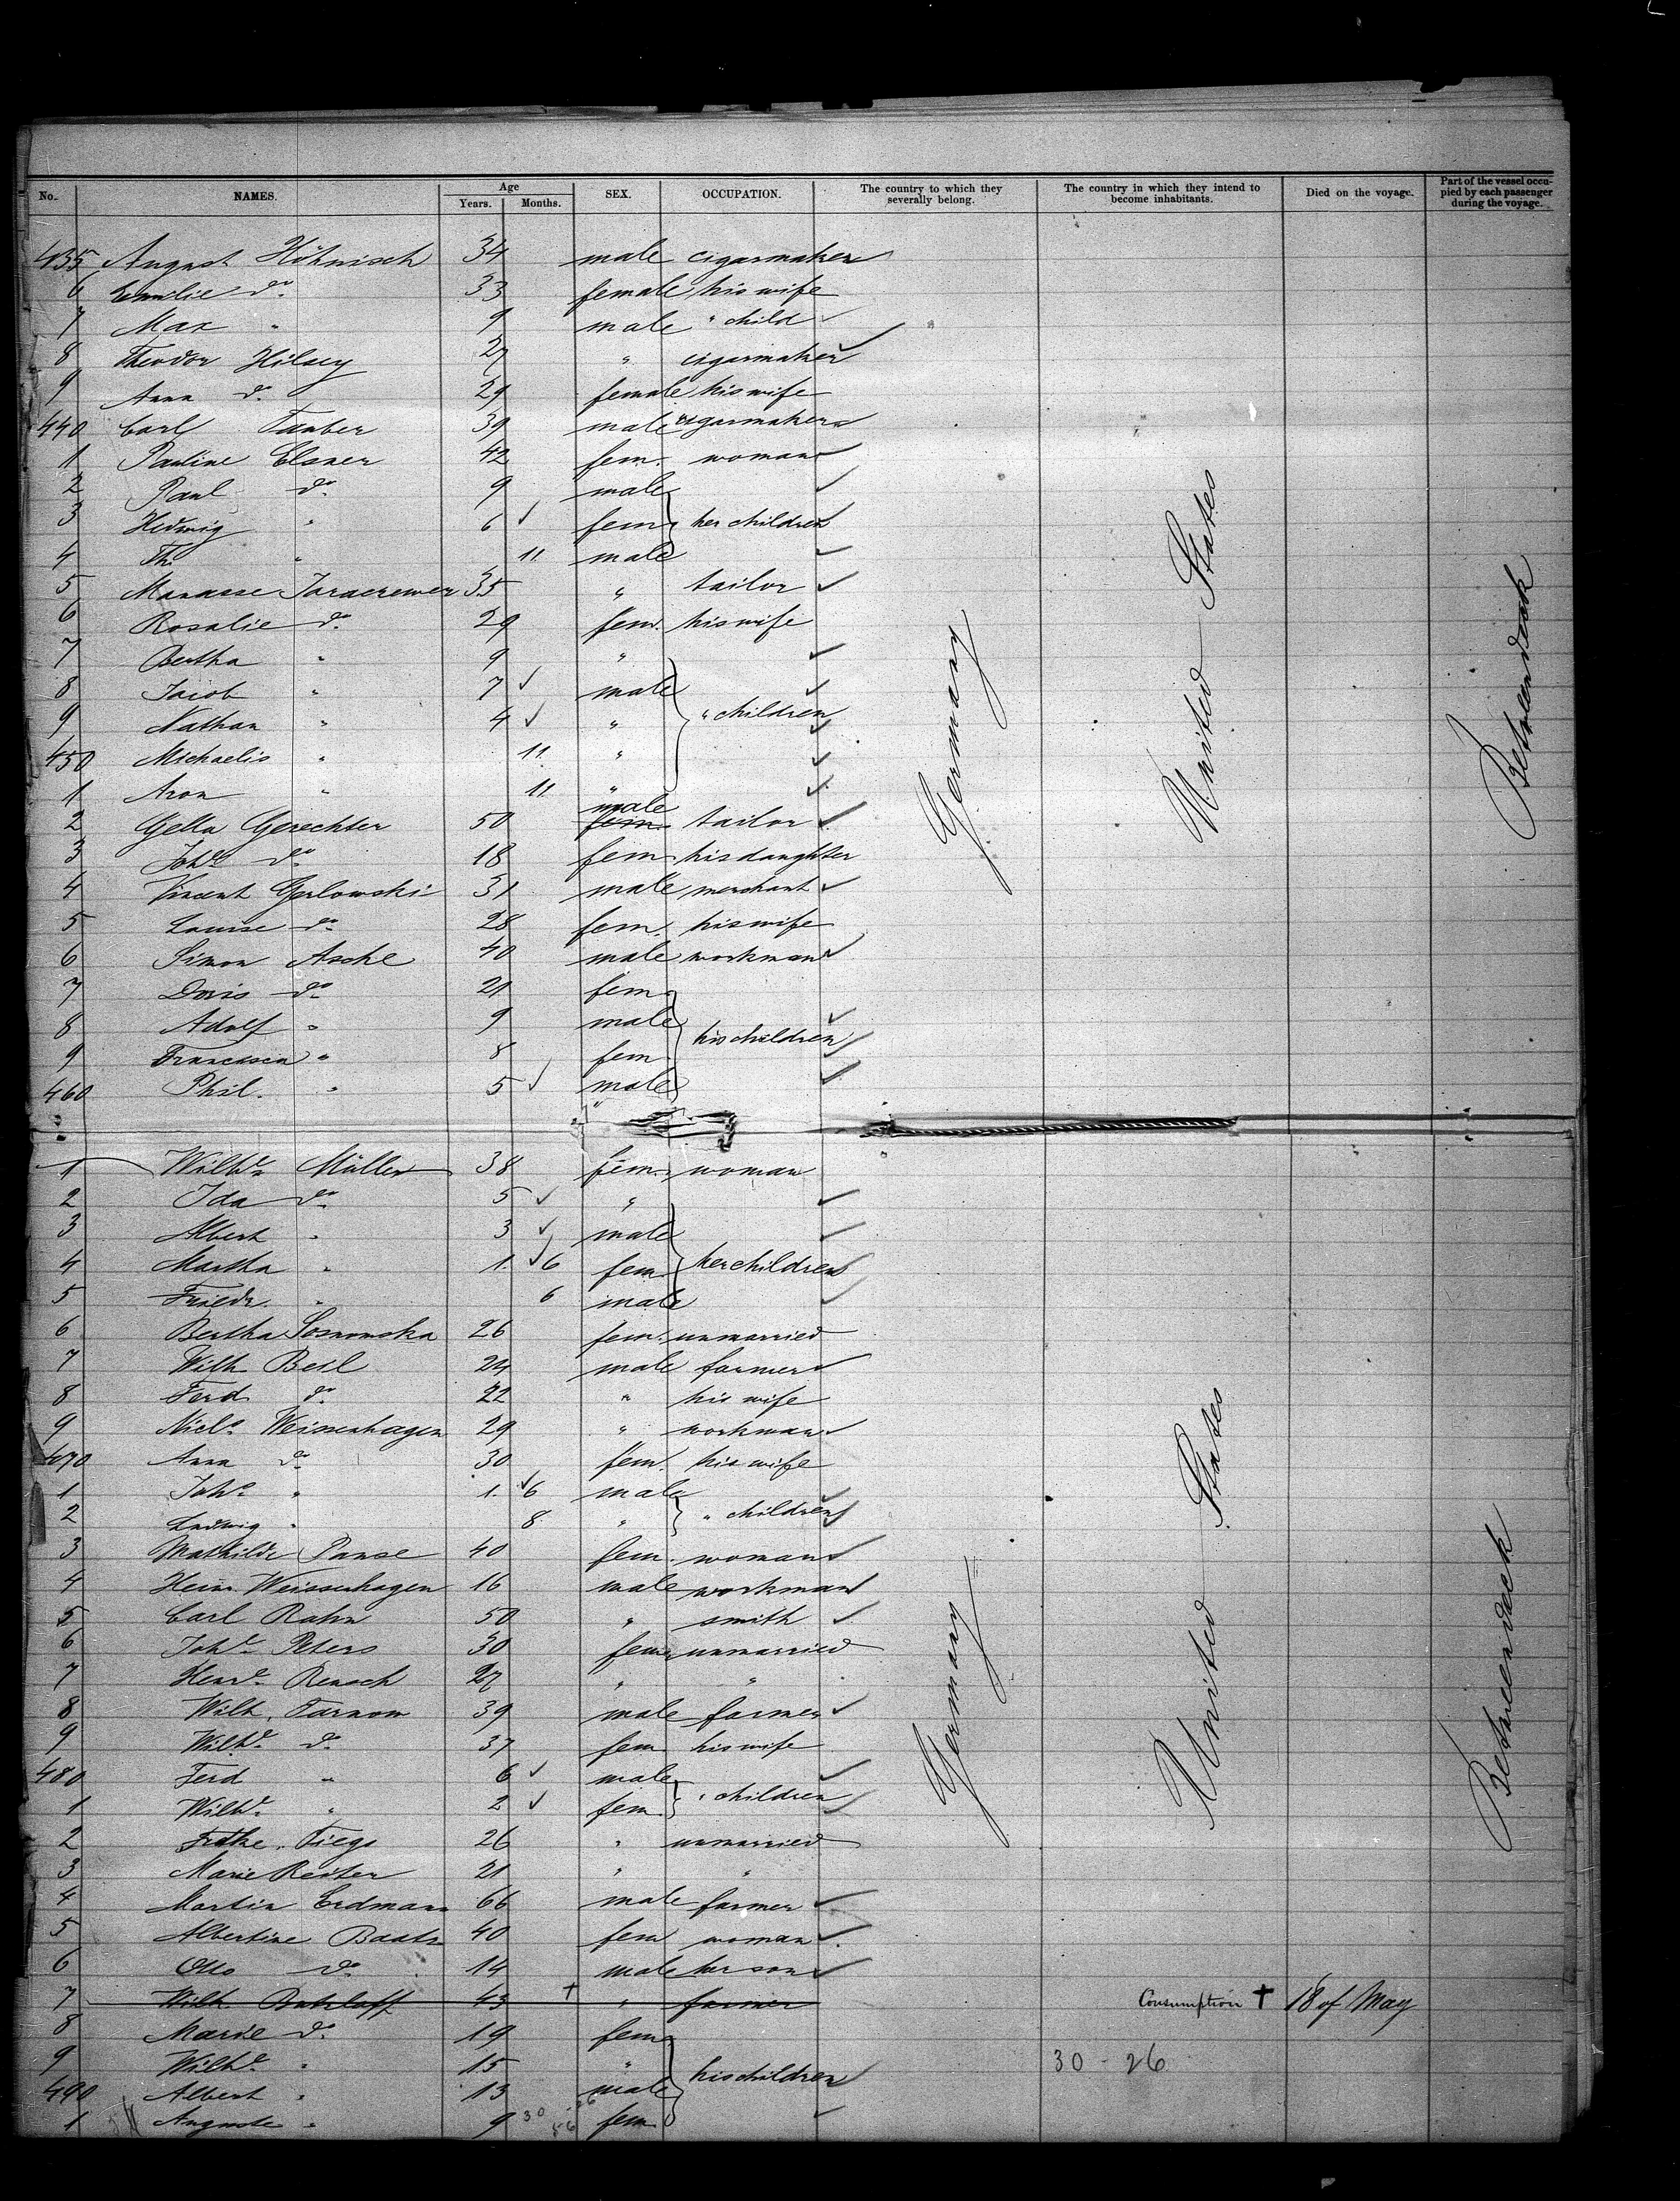 No. NAMES. Age Years. Months. SEX. OCCUPATION. The country to which they severally belong. The country in which they intend to become inhabitants. Died on the voyage. Part of the vessel occupied by each passenger during the voyage.
435 August Höhnisch 34 male cigarmaker
6 Emilie do 33 female his wife
7 Max " 9 male " child
8 Theodor Hilsey 27 " cigarmaker
9 Anna do 29 female his wife
440 Carl Tauber 39 male cigarmaker
1 Pauline Elsner 42 fem. woman
2 Paul do 9 male
3 Hedwig " 6 fem her children
4 Th. " 11 male
5 Manasse 35 " tailor
6 Rosalie do 29 fem. his wife
7 Bertha " 9 "
8 Jacob " 7 male
9 Nathan " 4 " " children
450 Michaelis " 11. "
1 Aron " 11 "
2 Gella Gerechter 50 fem. male tailor
3 Johe do 18 fem his daughter
4 Vincent Gerlowski 31 male merchant
5 Louise do 28 fem. his wife
6 Simon Asche 40 male workman
7 Doris do 21 fem
8 Adolf " 9 male his children
9 Francisca " 8 fem
460 Phil. " 5 male
Germany United States Betweendeck
1 Wilhe Müller 38 fem. woman
2 Ida do 5 "
3 Albert " 3 male
4 Martha " 1. 6 fem her children
5 Friedr. " 6 male
6 Bertha Sosnowska 26 fem. unmarried
7 Wilh Beil 24 male farmer
8 Ferd do 22 " his wife
9 Nicls Weissenhagen 29 " workman
470 Anna do 30 fem. his wife
1 Johs " 1. 6 male
2 Ludwig " 8 " " children
3 Mathilde Panse 40 fem. woman
4 Heinr Weissenhagen 16 male workman
5 Carl Rahn 50 " smith
6 Johe Peters 30 fem unmarried
7 Henre Rensch 27 " "
8 Wilh. Tarnow 39 male farmer
9 Wilhe do 37 fem his wife
480 Ferd " 6 male
1 Wilhe " 2 fem. " children
2 Fiege 26 " unmarried
3 Marie Reiter 21 " "
4 Martin Erdmann 66 male farmer
5 Albertine Baatz 40 fem woman
6 Otto do 14 male her son
7 Wilh Ratzlaff 43 † " farmer Consumption † 18 of May
8 Marie do 19 fem
9 Wilhe " 15 " his children 30 - 26
490 Albert " 13 male
1 Auguste " 9 30 26 56 fem
Germany United States Betweendeck